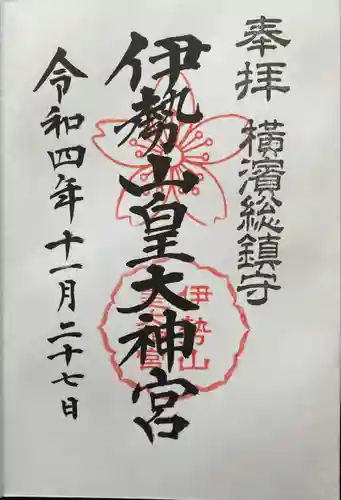 奉拝 横濱総鎮守
伊勢山皇大神宮
伊勢山
令和四年十一月二十七日